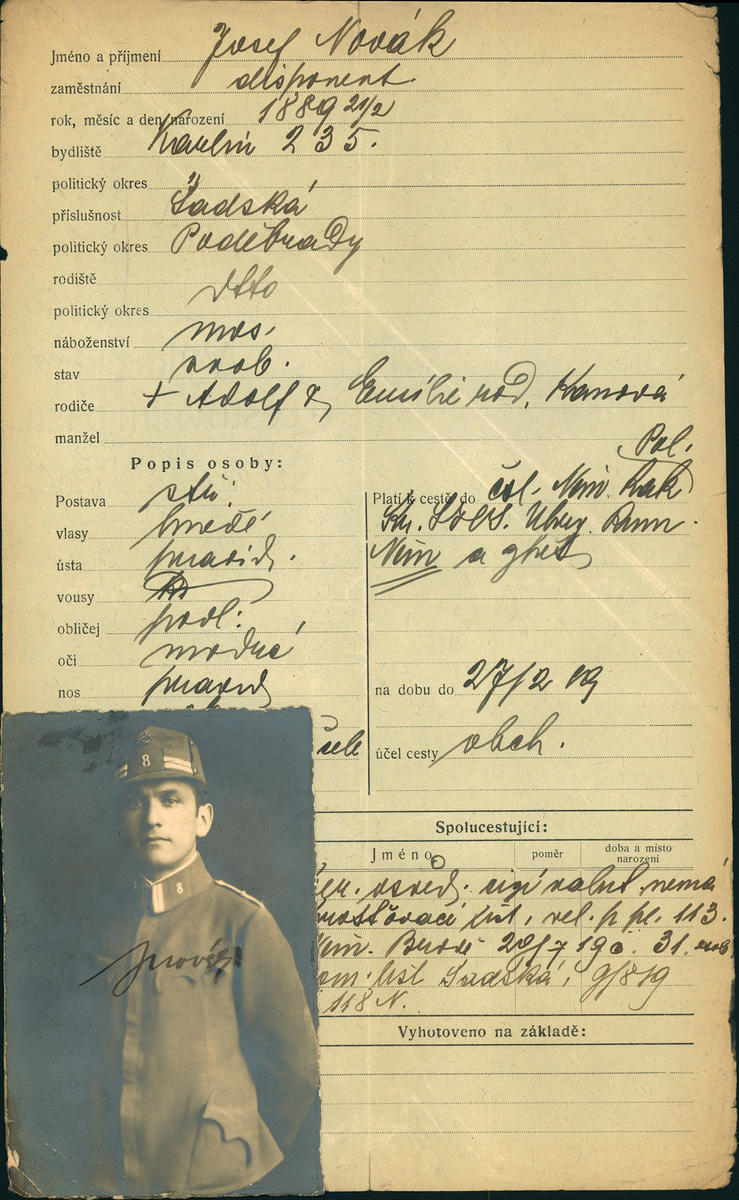 Jméno a příjmení Josef Novák
zaměstnání disponent.
rok, měsíc a den narození 1889 21/2
bydliště Karlín 235.
politický okres "
příslušnost Sadská
politický okres Poděbrady
rodiště dtto
politický okres
náboženství mos.
stav svob.
rodiče + Adolf & Emilie rod. Kanová
manžel
Popis osoby:
Postava stř.
vlasy hnědé
ústa pravid.
vousy
obličej podl:
oči modré
nos pravid
čele
Pol.
Platí k cestě do čsl. Něm. Rak
Uher. Rum.
Něm a zpět
na dobu do 27/2 19
účel cesty obch.
Spolucestující:
Jméno poměr doba a místo narození
osvěd. nemá
list, 113.
Brod 20/7 31.
list Sadská, 9/8 19
118 N.
Vyhotoveno na základě:
8
8
JNovák